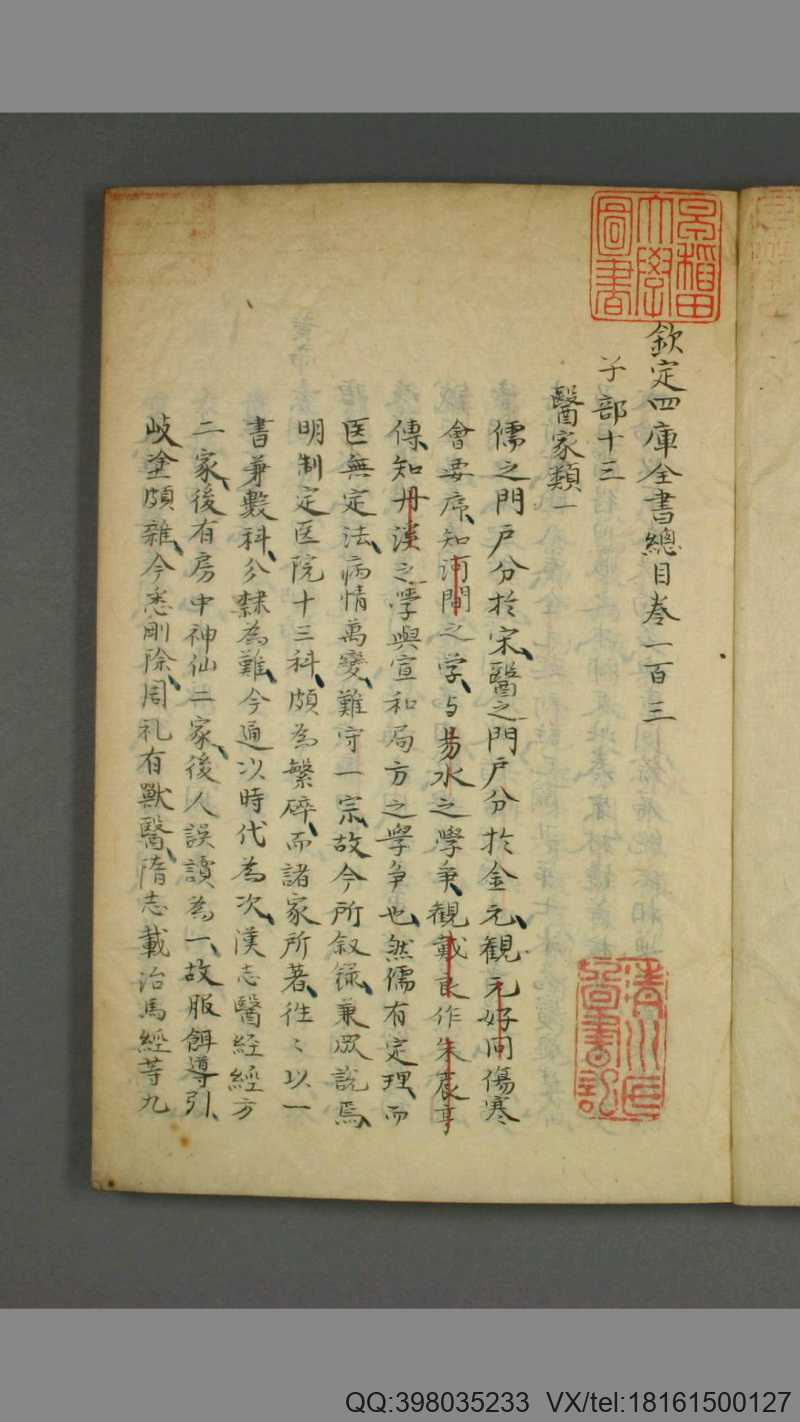 早稲田大學圖書
欽定四庫全書總目巻一百三
子部十三
醫家類一
儒之門戶分於宋、醫之門戶分於金元、觀元好问傷寒
會要序、知河間之学、与昜水之學爭、觀戴良作朱震亨
傳、知丹溪之學與宣和局方之學争也、然儒有定理、而
医無定法、病情萬變、難守一宗、故今所叙錄、兼眾說焉、
明制定医院十三科、頗為繁碎、而諸家所著、徃〻以一
書兼數科、分隸為難、今通以時代為次、漢志醫経経方
二家、後有房中神仙二家、後人誤讀為一、故服餌導引、
岐塗頗雜、今悉刪除、周礼有獸醫、隋志載治馬經等九
清川氏啚書記
QQ:398035233 VX/tel:18161500127